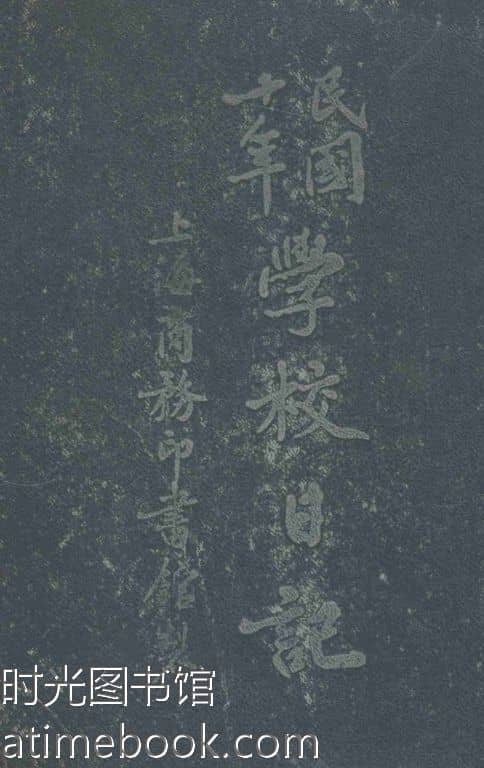 民國
十年
學校日記
上海商務印書館製
时光图书馆
atimebook.com